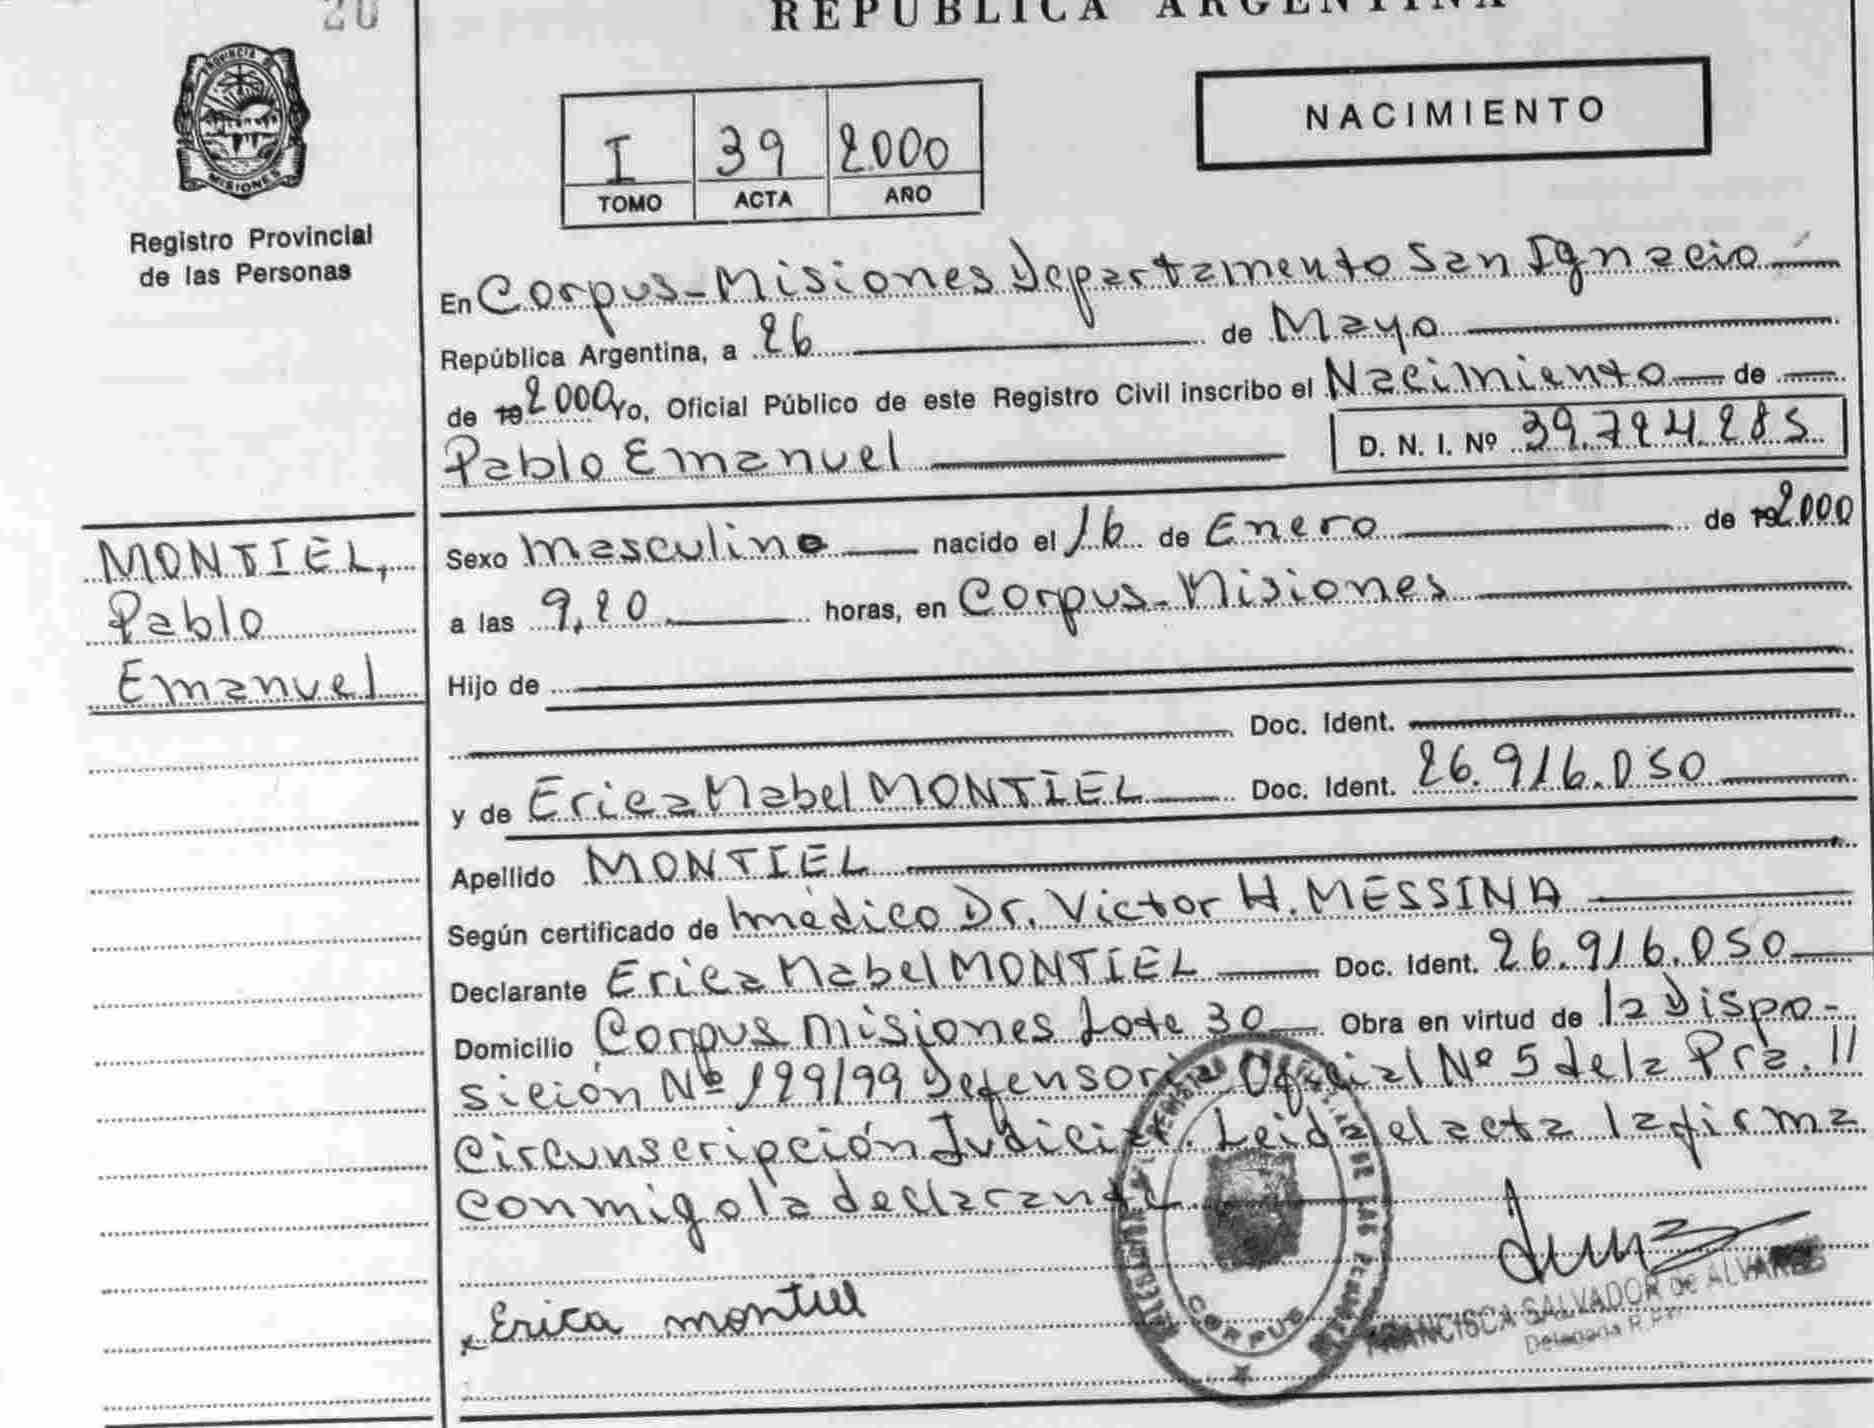 20
REPUBLICA ARGENTINA
PROVINCIA DE
MISIONES
Registro Provincial
de las Personas
I 39 2000
TOMO ACTA AÑO
NACIMIENTO
En Corpus-Misiones Departamento San Ignacio
República Argentina, a 26 de Mayo
de 19 2000 Yo, Oficial Público de este Registro Civil inscribo el Nacimiento de
Pablo Emanuel D. N. I. Nº 39.724.285
MONTIEL,
Pablo
Emanuel
Sexo masculino nacido el 16 de Enero de 19 2000
a las 9,20 horas, en Corpus-Misiones
Hijo de
Doc. Ident.
y de Erica Mabel MONTIEL Doc. Ident. 26.916.050
Apellido MONTIEL
Según certificado de médico Dr. Victor H. MESSINA
Declarante Erica Mabel MONTIEL Doc. Ident. 26.916.050
Domicilio Corpus Misiones Lote 30 Obra en virtud de la Dispo-
sición Nº 129/99 Defensoria Oficial Nº 5 de la Pra.
Circunscripción Judicial. Leida el acta la firma
conmigo la declarante.
x Erica montiel
CORPUS
FRANCISCA SALVADOR de ALVAREZ
Delegada R.P.P.